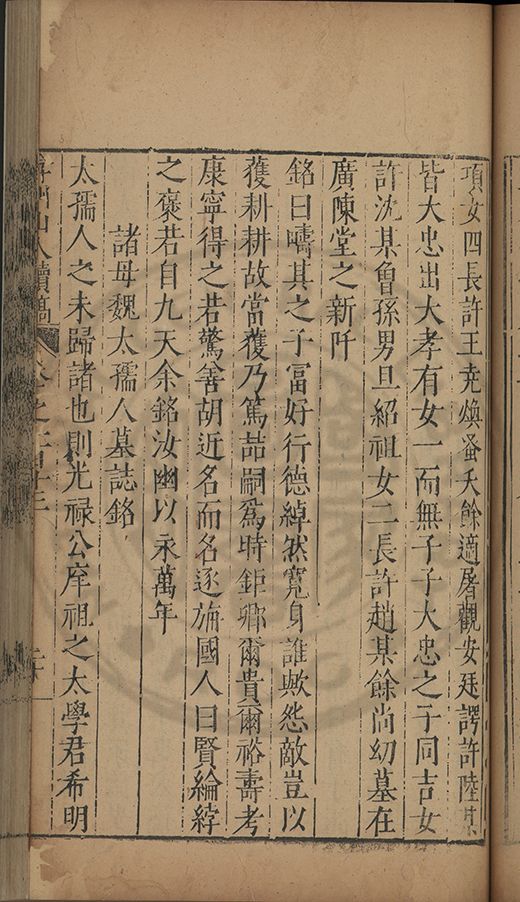 項女四長許王堯煥蚤夭餘適屠觀安廷諤許陸某
皆大忠出大孝有女一而無子子大忠之子同吉女
許沈某曾孫男旦紹祖女二長許趙某餘尚幼墓在
廣陳堂之新阡
銘曰疇其之子富好行德綽然寬身誰歟怨敵豈以
穫耕耕故當穫乃篤喆嗣爲時鉅卿爾貴爾裕壽考
康寧得之若驚善胡近名而名逐施國人曰賢綸綍
之褒若自九天余銘汝幽以永萬年
諸母魏太孺人墓誌銘
太孺人之未歸諸也則光祿公庠祖之太學君希明
弇州山人續稿 卷之一百十三 二十